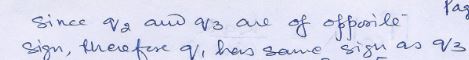 Pag
since q2 and q3 are of opposite
sign, therefore q1 has same sign as q3